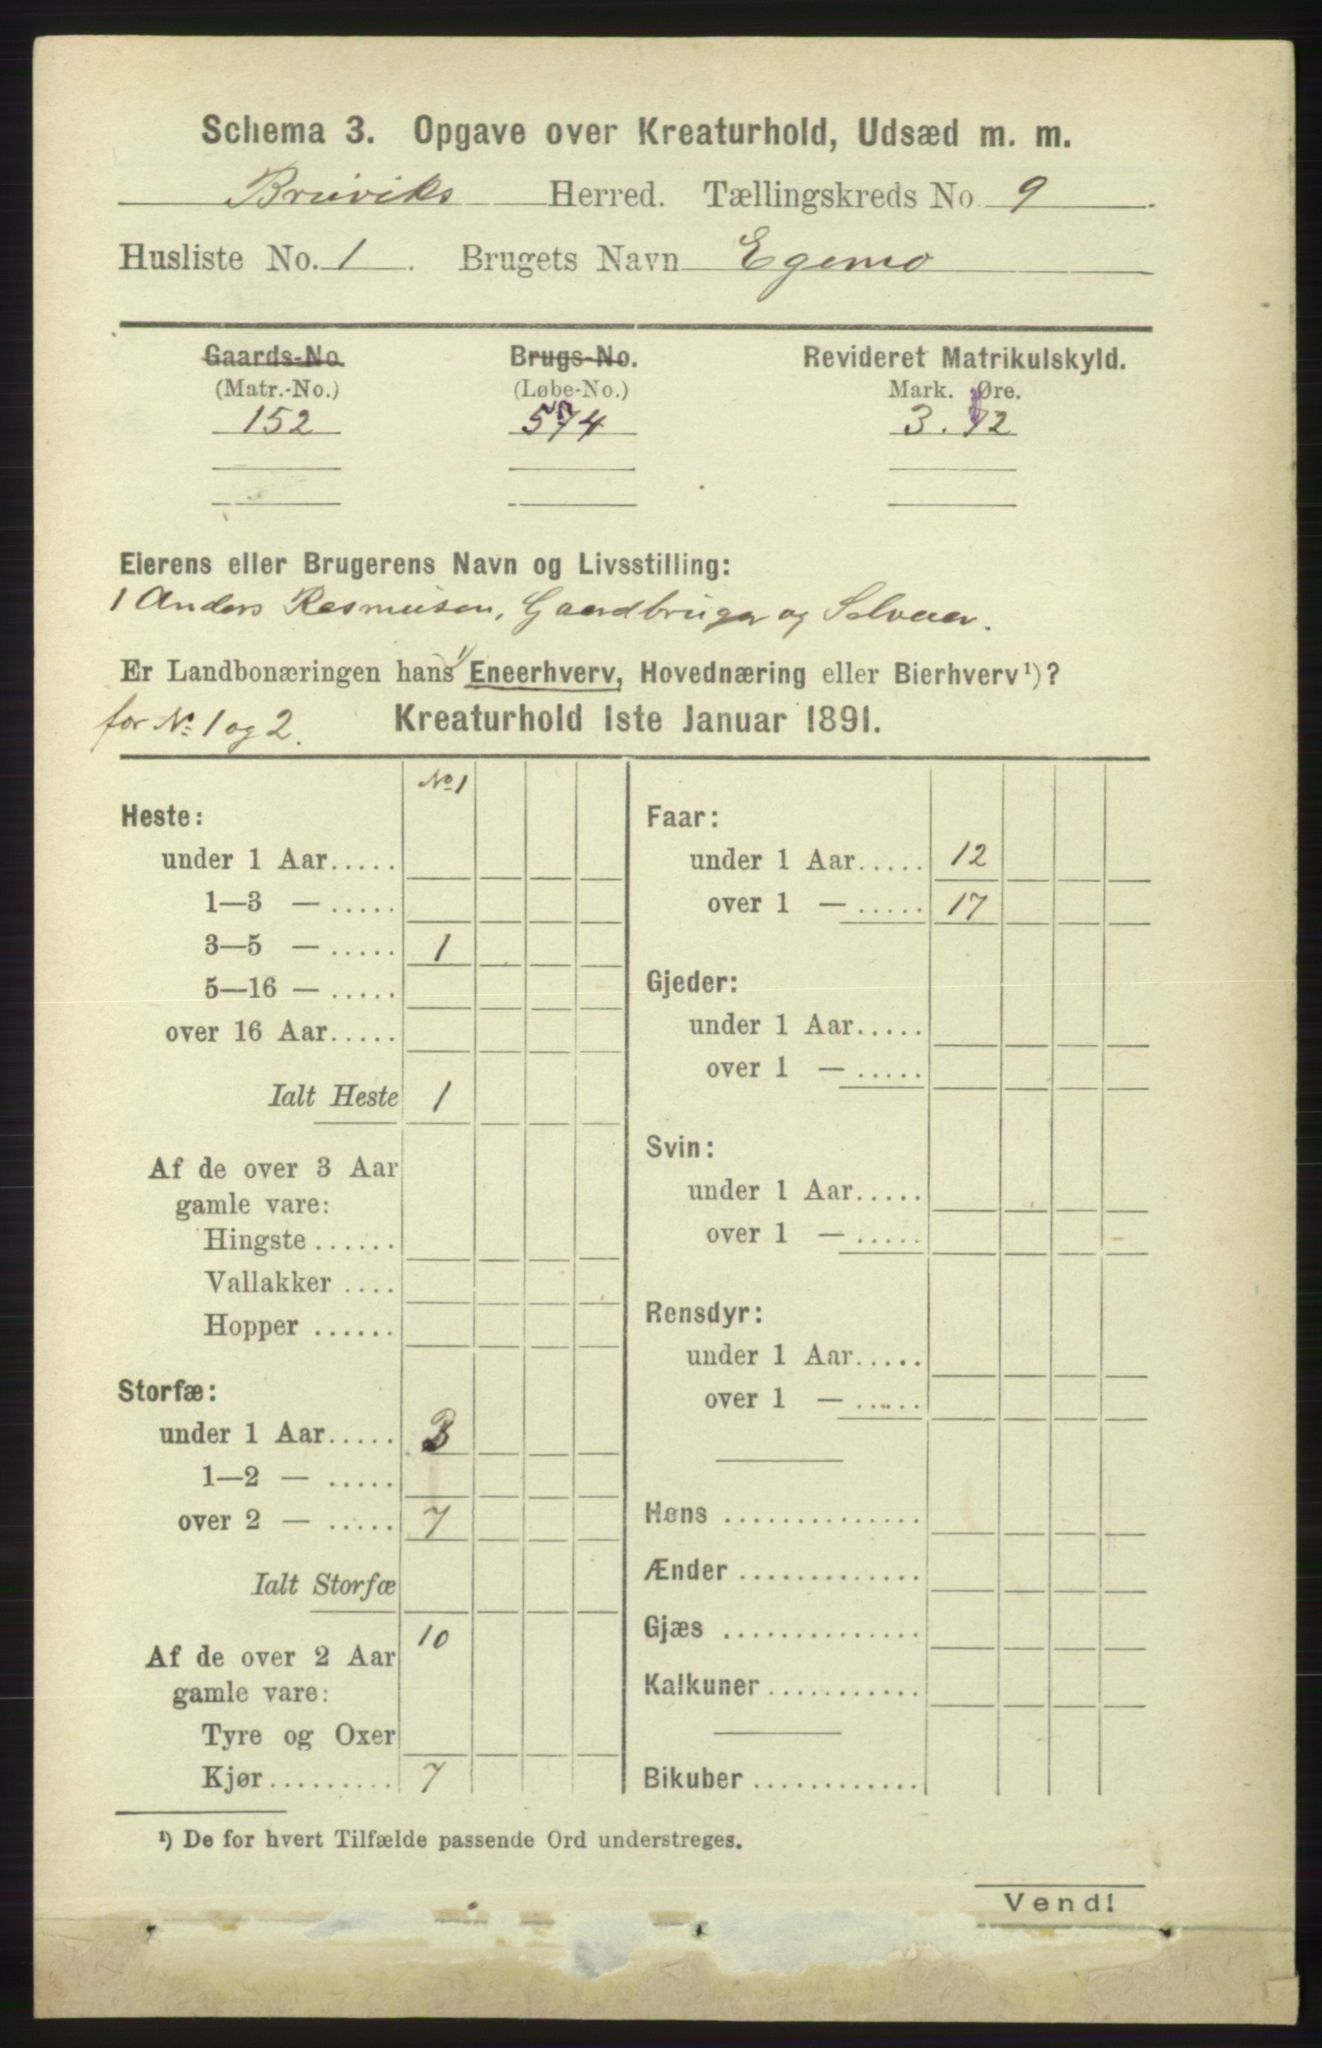 Schema 3. Opgave over Kreaturhold, Udsæd m. m.
Bruviks Herred. Tællingskreds No. 9.
Husliste No. 1. Brugets Navn Egemo
Gaards-No. Brugs-No. Revideret Matrikulskyld.
(Matr.-No.) (Løbe-No.) Mark. Øre.
152 3.
Eierens eller Brugerens Navn og Livsstilling:
1 Anders Rasmusen, Gaardbruger og Selveier.
Er Landbonæringen hans 1) Eneerhverv, Hovednæring eller Bierhverv¹)?
for No 1 og 2. Kreaturhold 1ste Januar 1891.
No 1
Heste:
under 1 Aar.....
1—3 — .....
3—5 — ..... 1
5—16 — .....
over 16 Aar.....
Ialt Heste 1
Af de over 3 Aar
gamle vare:
Hingste ......
Vallakker ....
Hopper ......
Storfæ:
under 1 Aar..... 3
1—2 — .....
over 2 — ..... 7
Ialt Storfæ
10
Af de over 2 Aar
gamle vare:
Tyre og Oxer
Kjør......... 7
Faar:
under 1 Aar..... 12
over 1 — ..... 17
Gjeder:
under 1 Aar.....
over 1 — .....
Svin:
under 1 Aar.....
over 1 — .....
Rensdyr:
under 1 Aar.....
over 1 — .....
Høns ..............
Ænder.............
Gjæs ..............
Kalkuner...........
Bikuber ............
¹) De for hvert Tilfælde passende Ord understreges.
Vend!